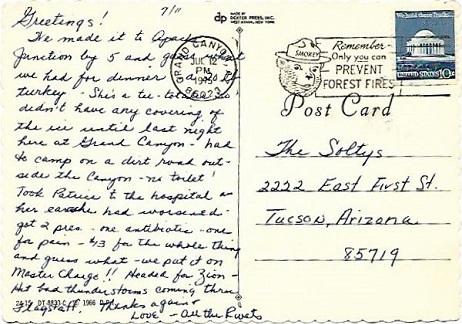 Greetings! 7/11
We made it to Apache
Junction by 5 and guess what
we had for dinner - a lot of
turkey - She's a tee-totaler so
didn't have any covering of
the ice until last night
here at Grand Canyon - had
to camp on a dirt road out-
side the Canyon - no toilet!
Took Patrice to the hospital as
her earache had worsened -
got 2 pres. - one antibiotic - one
for pain - $13 for the whole thing
and guess what - we put it on
Master Charge!! Headed for Zion -
Hit bad thunderstorms coming thru
Flagstaff. Thanks again
Love - All the Rivets
24-15 DT-8893-C 1966 D.P.I.
dp MADE BY
DEXTER PRESS, INC.
WEST NYACK, NEW YORK
GRAND CANYON
JUL 12
PM
1975
86023
SMOKEY
Remember-
Only you can
PREVENT
FOREST FIRES
We hold these Truths...
UNITED STATES 10c
Post Card
The Soltys
2222 East First St.
Tucson, Arizona
85719